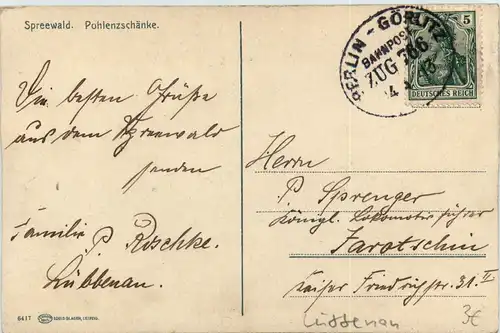 Spreewald. Pohlenzschänke.
BERLIN - GÖRLITZ
BAHNPOST
ZUG 766
5
DEUTSCHES REICH
Die besten Grüße
aus dem Spreewald
senden
Familie P. Roschke.
Lübbenau.
Herrn
P. Sprenger
Königl. Lokomotivführer
Jarotschin
Kaiser Friedrichstr. 31. II
Lübbenau
3€
6417